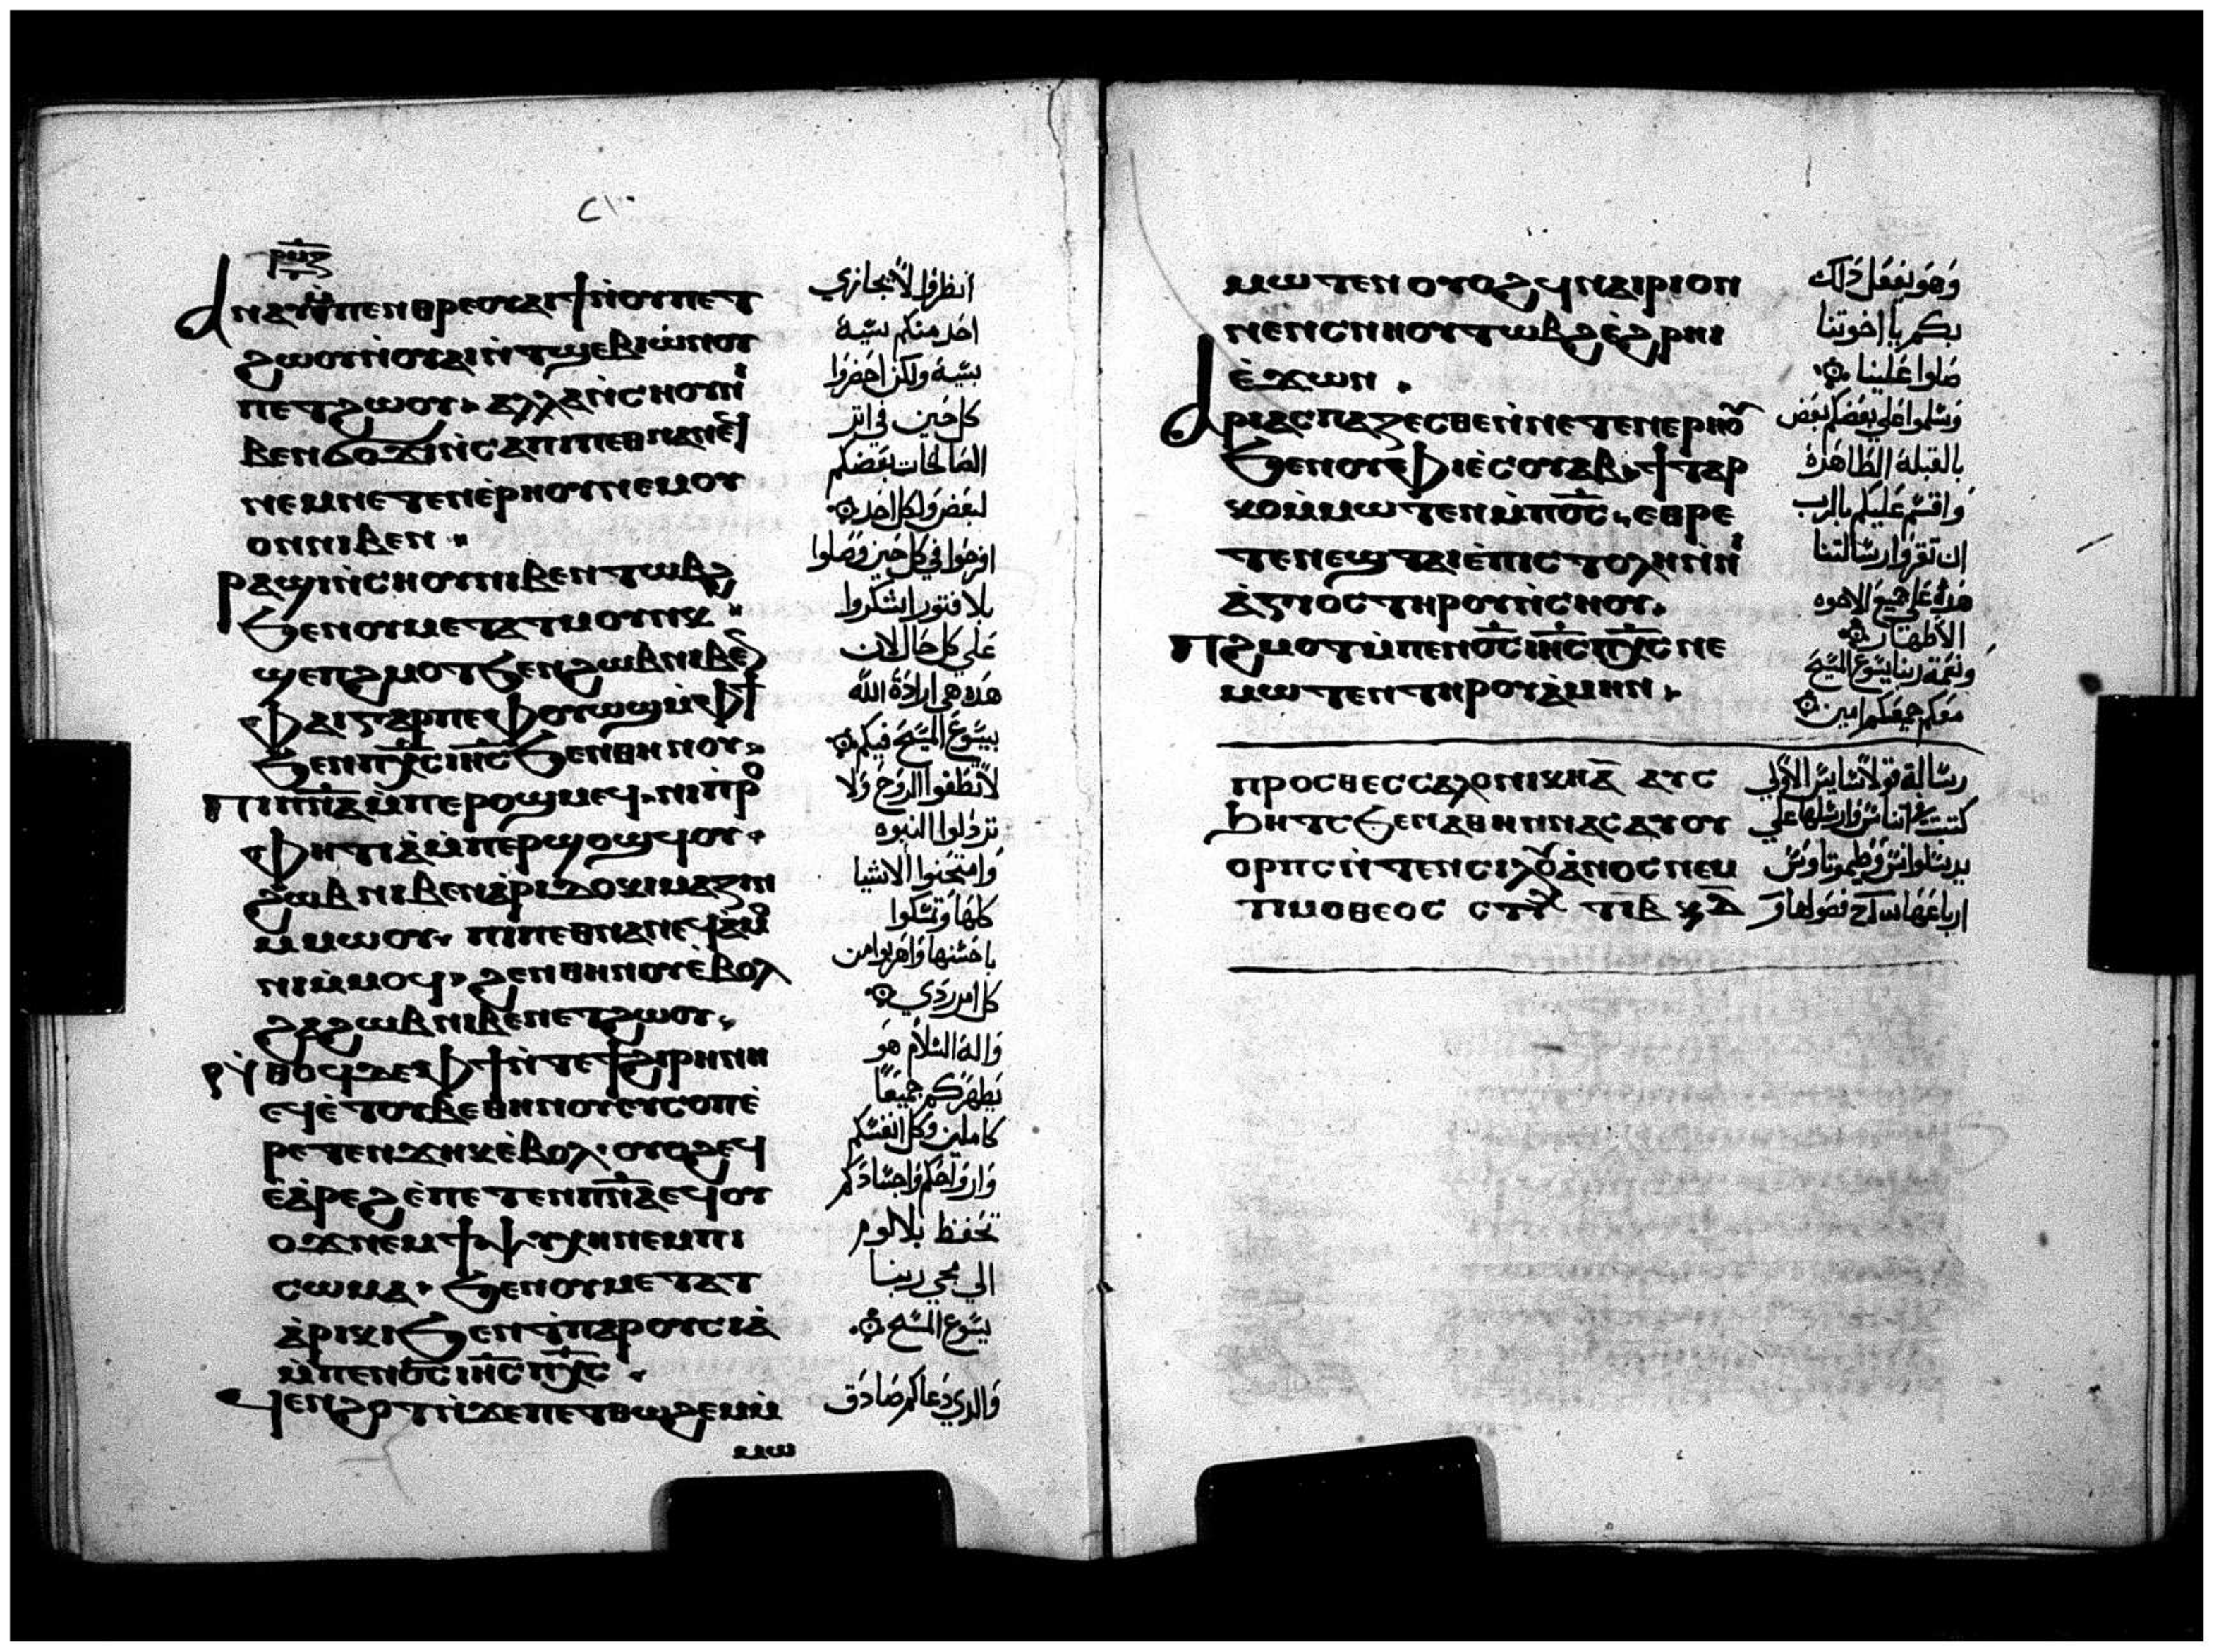 ⲣⲙⲍ
ⲁⲛⲁⲩ ⲙ̀ⲡⲉⲛⲑⲣⲉ ⲟⲩⲁⲓ ϯ ⲛ̀ⲟⲩⲡⲉⲧ
ϩⲱⲟⲩ ⲛ̀ⲟⲩⲁⲓ ⲛ̀ⲧϣⲉⲃⲓⲱ̀ ⲛⲟⲩ
ⲡⲉⲧϩⲱⲟⲩ ⲁⲗⲗⲁ ⲛ̀ⲥⲏⲟⲩ ⲛⲓ
ⲃⲉⲛ ϭⲟϫⲓ ⲛ̀ⲥⲁ ⲡⲓⲡⲉⲑⲛⲁⲛⲉϥ
ⲛⲉⲙ ⲛⲉⲧⲉⲛⲉ̀ⲣⲏⲟⲩ ⲛⲉⲙ ⲟⲩ
ⲟⲛ ⲛⲓⲃⲉⲛ
ⲣⲁϣⲓ ⲛ̀ⲥⲏⲟⲩ ⲛⲓⲃⲉⲛ ⲧⲱⲃϩ
ϧⲉⲛ ⲟⲩⲙⲉⲧⲁⲧⲙⲟⲩⲛⲕ
ϣⲉⲡϩⲙⲟⲧ ϧⲉⲛ ϩⲱⲃ ⲛⲓⲃⲉⲛ
ⲫⲁⲓ ⲅⲁⲣ ⲡⲉ ⲫⲟⲩⲱϣ ⲙ̀ⲫϯ
ϧⲉⲛ ⲡⲭ̅ⲥ ⲓⲏ̅ⲥ ϧⲉⲛ ⲑⲏⲛⲟⲩ
ⲡⲓⲡⲛ̅ⲁ ⲙ̀ⲡⲉⲣⲟϣⲙⲉϥ ⲛⲓⲡⲣⲟ
ⲫⲏⲧⲓⲁ̀ ⲙ̀ⲡⲉⲣϣⲟϣϥⲟⲩ
ϩⲱⲃ ⲛⲓⲃⲉⲛ ⲁ̀ⲣⲓⲇⲟⲕⲓⲙⲁⲍⲓⲛ
ⲙ̀ⲙⲱⲟⲩ ⲡⲓⲡⲉⲑⲛⲁⲛⲉϥ ⲁ̀ⲙⲟ
ⲛⲓ ⲙ̀ⲙⲟϥ ϩⲉⲛ ⲑⲏⲛⲟⲩ ⲉ̀ⲃⲟⲗ
ϩⲁ ϩⲱⲃ ⲛⲓⲃⲉⲛ ⲉⲧϩⲱⲟⲩ
ⲛ̀ⲑⲟϥ ⲇⲉ ⲫϯ ⲛ̀ⲧⲉ ϯϩⲓⲣⲏⲛⲏ
ⲉϥⲉ̀ⲧⲟⲩⲃⲉ ⲑⲏⲛⲟⲩ ⲉⲩⲥⲟⲡ ⲉ̀
ⲣⲉⲧⲉⲛϫⲏⲕ ⲉ̀ⲃⲟⲗ ⲟⲩⲟϩ ⲉϥ
ⲉ̀ⲁ̀ⲣⲉϩ ⲉ̀ⲡⲉⲧⲉⲛⲡⲛ̅ⲁ ⲉϥⲟⲩ
ⲟϫ ⲛⲉⲙ ϯⲯⲩⲭⲏ ⲛⲉⲙ ⲡⲓ
ⲥⲱⲙⲁ ϧⲉⲛ ⲟⲩⲙⲉⲧⲁⲧ
ⲁ̀ⲣⲓⲕⲓ ϧⲉⲛ ϯⲡⲁⲣⲟⲩⲥⲓⲁ̀
ⲙ̀ⲡⲉⲛⲟ̅ⲥ ⲓⲏ̅ⲥ ⲡⲭ̅ⲥ
ϥⲉⲛϩⲟⲧ ⲛ̀ϫⲉ ⲡⲉⲧⲑⲱϩⲉⲙ ⲙ̀
ⲙⲱ
انظروا لا يجازي
احد منكم سيية
بسيية ولكن احضروا
كل حين في اتر
الصالحات بعضكم
لبعض ولكل احد
افرحوا في كل حين وصلوا
بلا فتور اشكروا
علي كل حال لان
هده هي ارادة الله
بيسوع المسيح فيكم
لا تطفوا الروح ولا
تردلوا النبوه
وامتحنوا الاشيا
كلها وتمسكوا
باحسنها واهربوا من
كل امر ردي
واله السلام هو
يطهركم جميعا
كاملين وكل انفسكم
وارواحكم واجسادكم
تحفظ بلا لوم
الي مجي ربنا
يسوع المسيح
والدي دعاكم صادق
ⲙⲱⲧⲉⲛ ⲟⲩⲟϩ ϥⲛⲁⲓⲣⲓ ⲟⲛ
ⲛⲉⲛⲥⲛⲏⲟⲩ ⲧⲱⲃϩ ⲉ̀ϩⲣⲏⲓ
ⲉ̀ϫⲱⲛ
ⲁⲣⲓⲁⲥⲡⲁⲍⲉⲥⲑⲉ ⲛ̀ⲛⲉⲧⲉⲛⲉⲣⲏⲟⲩ
ϧⲉⲛ ⲟⲩⲫⲓ ⲉⲥⲟⲩⲁⲃ ϯⲧⲁⲣ
ⲕⲟ ⲙ̀ⲙⲱⲧⲉⲛ ⲙ̀ⲡⲟ̅ⲥ ⲉⲑⲣⲉ
ⲧⲉⲛⲉϣ ⲧⲁⲓⲉ̀ⲡⲓⲥⲧⲟⲗⲏ ⲛ̀ⲛⲓ
ⲁ̀ⲅⲓⲟⲥ ⲧⲏⲣⲟⲩ ⲛ̀ⲥⲛⲟⲩ
ⲡϩⲙⲟⲧ ⲙ̀ⲡⲉⲛⲟ̅ⲥ ⲓⲏ̅ⲥ ⲡⲭ̅ⲥ ⲛⲉ
ⲙⲱⲧⲉⲛ ⲧⲏⲣⲟⲩ ⲁ̀ⲙⲏⲛ
وهو يفعل دلك
بكم يا اخوتنا
صلوا علينا
وسلموا علي بعضكم بعض
بالقبلة الطاهرة
واقسم عليكم بالرب
ان تقروا رسالتنا
هده علي جميع الاخوه
الاطهار
ونعمة ربنا يسوع المسيح
معكم جميعكم امين
ⲡⲣⲟⲥ ⲑⲉⲥⲥⲁⲗⲟⲛⲓⲕⲏ ⲁ̅ ⲁⲩⲥ
ϧⲏⲧⲥ ϧⲉⲛ ⲁⲑⲏⲛⲛⲁⲥ ⲁⲩⲟⲩ
ⲟⲣⲡⲥ ⲛ̀ⲧⲉⲛ ⲥⲓⲗⲟⲩⲁⲛⲟⲥ ⲛⲉⲙ
ⲧⲓⲙⲟⲑⲉⲟⲥ